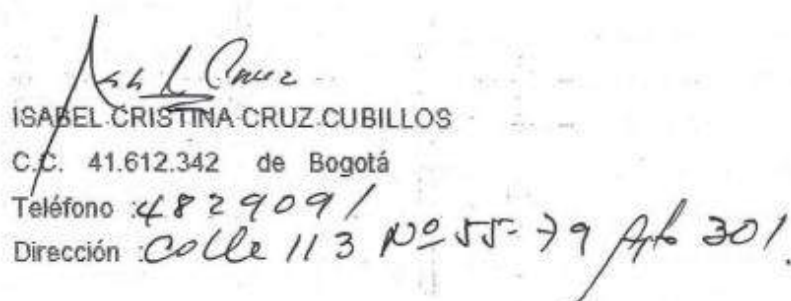 Isabel Cruz
ISABEL CRISTINA CRUZ CUBILLOS
C.C. 41.612.342 de Bogotá
Teléfono : 4829091
Dirección : Calle 113 Nº 55-79 Apto 301.